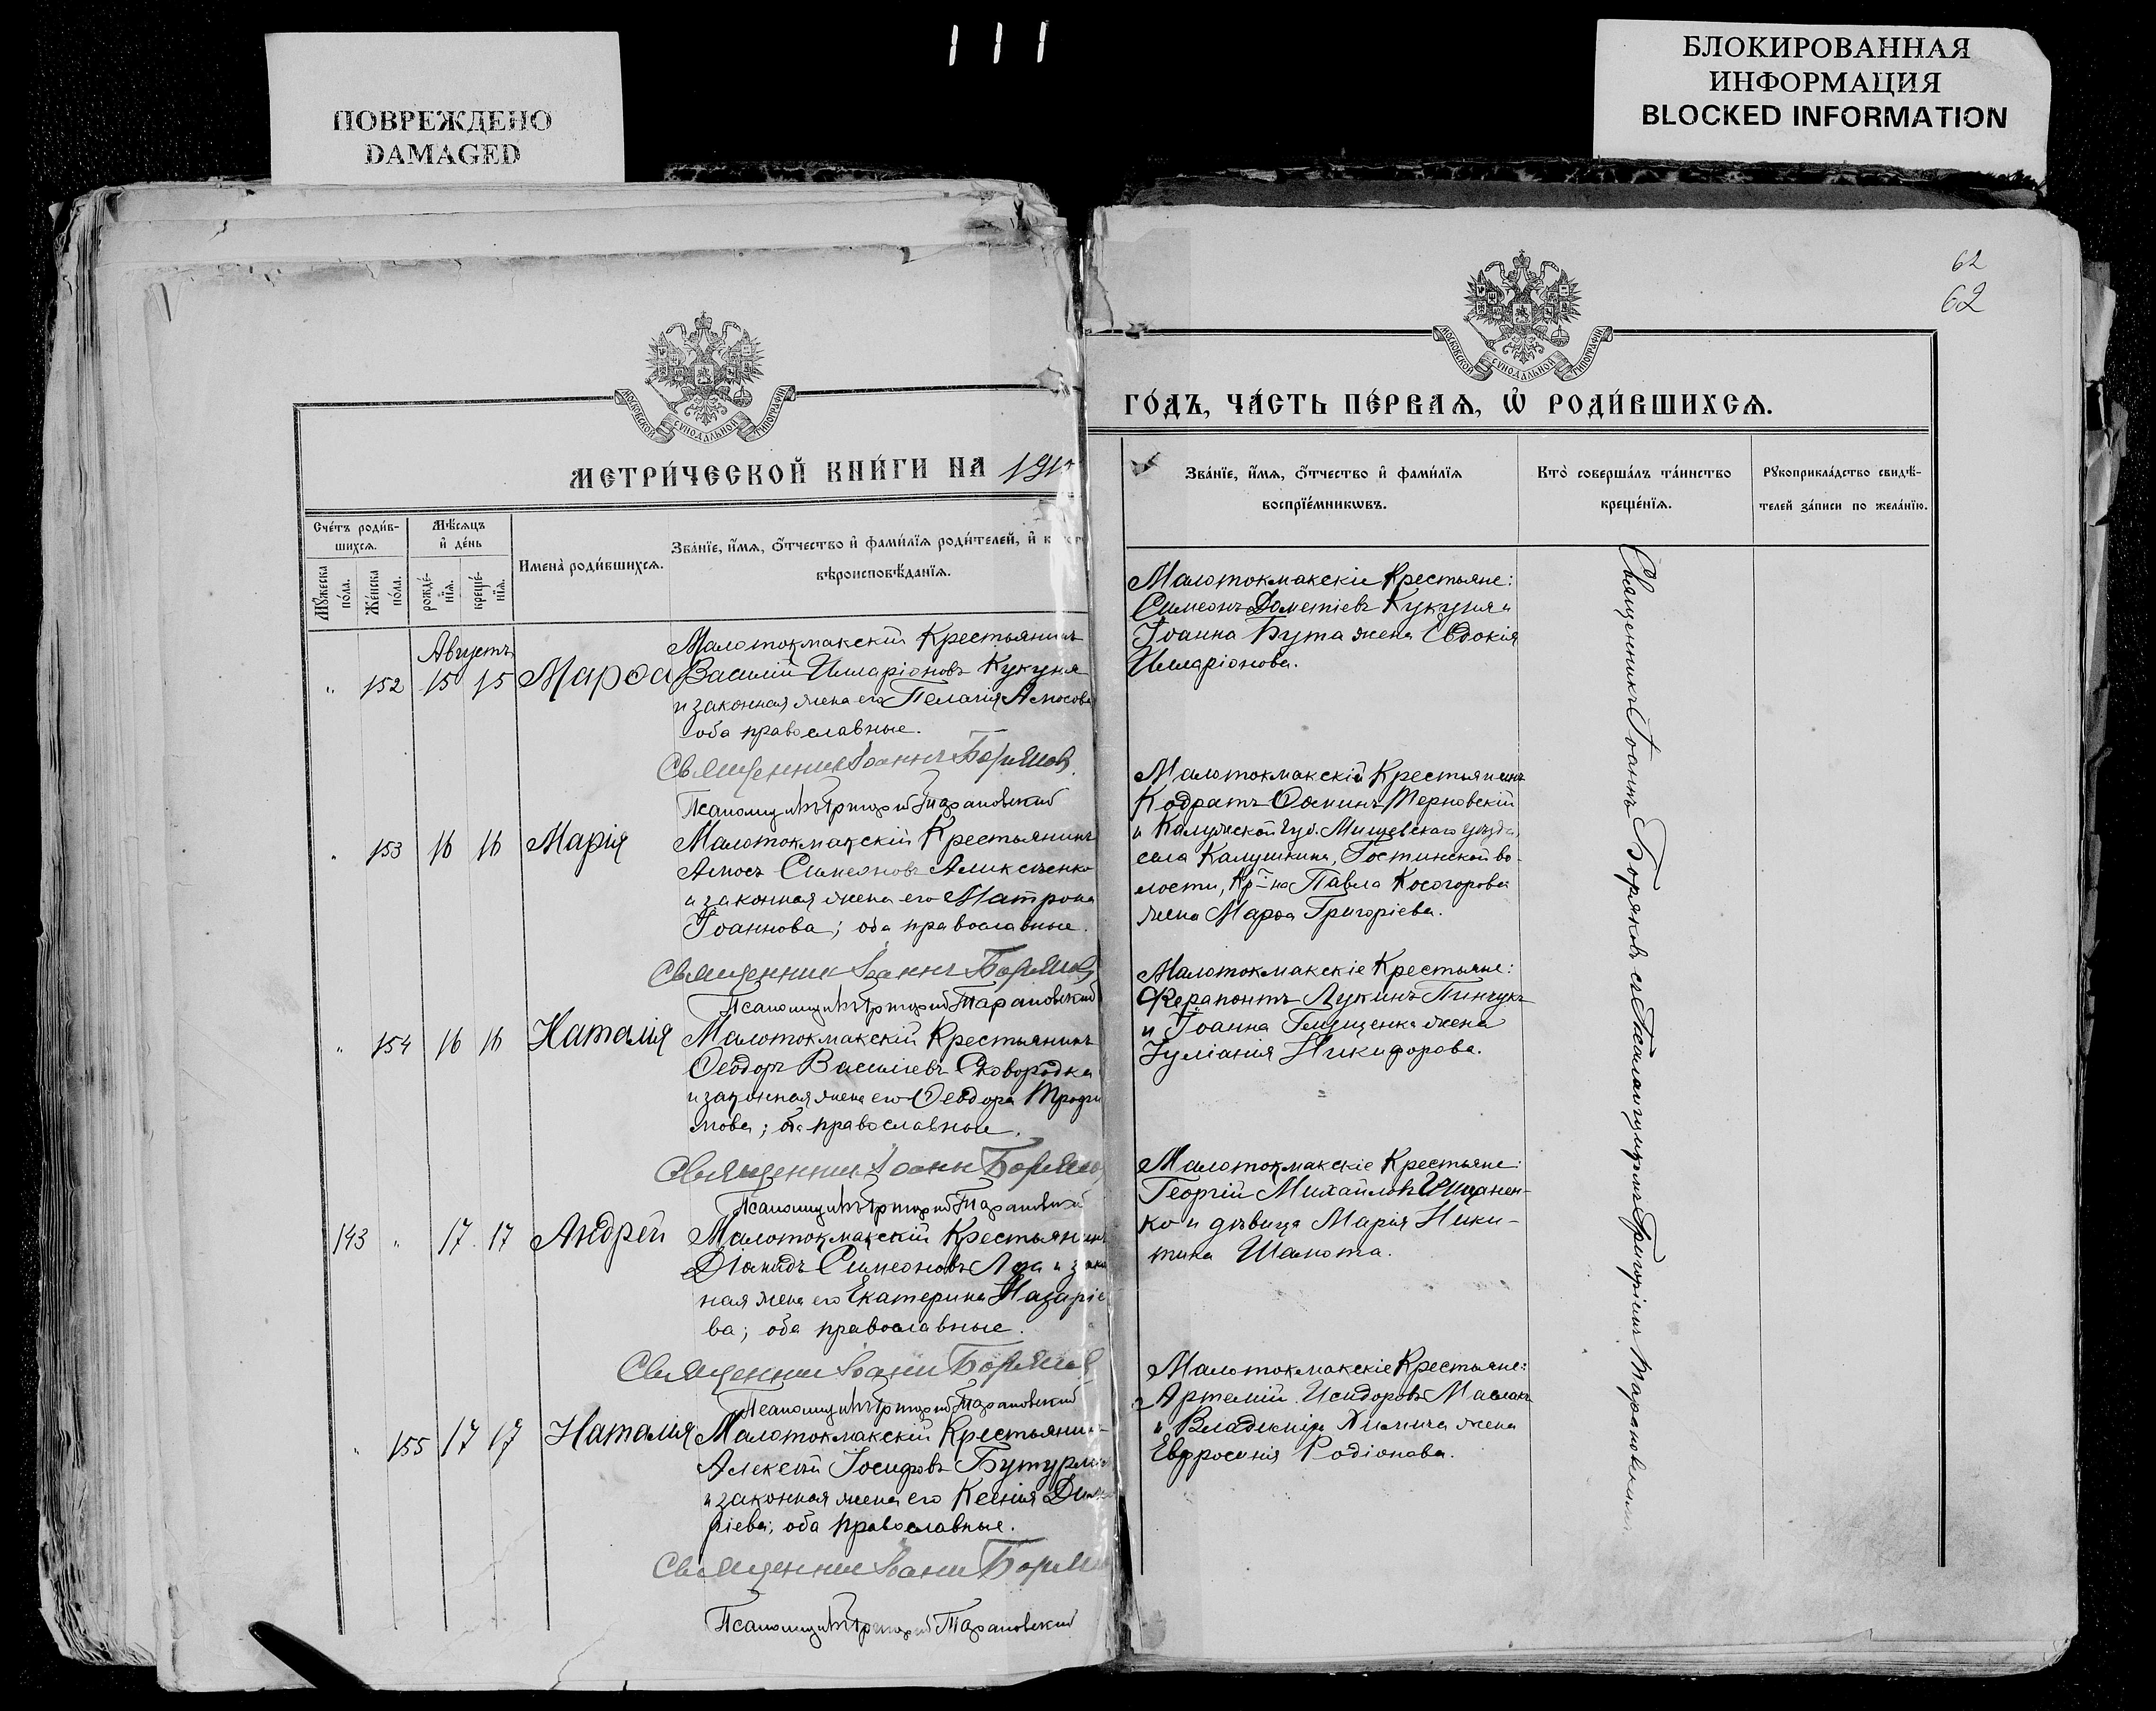 111
ПОВРЕЖДЕНО
DAMAGED
БЛОКИРОВАННАЯ
ИНФОРМАЦИЯ
BLOCKED INFORMATION
МОСКОВСКОЙ СѴНОДАЛЬНОЙ ТИПОГРАФІИ
МЕТРИ́ЧЕСКОЙ КНИ́ГИ НА 191
Сче́тъ роди́в-
шихсѧ.
Мѣ́сѧцъ
и҆ де́нь
Мꙋ́жеска
по́ла.
Же́нска
по́ла.
рожде́-
нїѧ.
креще́-
нїѧ.
Имена̀ роди́вшихсѧ.
Зва́нїе, и҆́мѧ, ѻ҆́тчество и҆ фами́лїѧ роди́телей, и҆ к
вѣроисповѣ́данїѧ.
Августъ
" 152 15 15 Марѳа
Малотокмакскій Крестьянинъ
Василій Иларіоновъ Кукуня
и законная жена его Пелагія Амосова
оба православные.
Священникъ Іоаннъ Боряковъ
Псаломщикъ Григорій Тарановскій
" 153 16 16 Марія
Малотокмакскій Крестьянинъ
Амосъ Симеоновъ Аликсѣенко
и законная жена его Матрона
Іоаннова; оба православные.
Священникъ Іоаннъ Боряковъ
Псаломщикъ Григорій Тарановскій
" 154 16 16 Наталія
Малотокмакскій Крестьянинъ
Ѳеодоръ Василіевъ Сковородка
и законная жена его Ѳеодора Трофи
мова; оба православные.
Священникъ Іоаннъ Боряковъ
Псаломщикъ Григорій Тарановскій
143 " 17 17 Андрей
Малотокмакскій Крестьянинъ
Діомидъ Симеоновъ и зако
ная жена его Екатерина Назаріе
ва; оба православные.
Священникъ Іоаннъ Боряковъ
Псаломщикъ Григорій Тарановскій
" 155 17 17 Наталія
Малотокмакскій Крестьянин
Алексѣй Іосифовъ Бутурл
и законная жена его Ксенія Дим
ріева; оба православные.
Священникъ Іоаннъ Боряковъ
Псаломщикъ Григорій Тарановскій
62
62
МОСКОВСКОЙ СѴНОДАЛЬНОЙ ТИПОГРАФІИ
ГО́ДЪ, ЧА́СТЬ ПЕ́РВАѦ, Ѡ҆ РОДИ́ВШИХСѦ.
Зва́нїе, и҆́мѧ, ѻ҆́тчество и҆ фами́лїѧ
воспрїе́мникѡвъ.
Кто̀ соверша́лъ та́инство
креще́нїѧ.
Рꙋкоприкла́дство свидѣ́-
телей за́писи по жела́нїю.
Малотокмакскіе Крестьяне:
Симеонъ Дометіевъ Кукуня и
Іоанна Бута жена Евдокія
Иларіонова.
Малотокмакскій Крестьянинъ
Кодратъ Ѳоминъ Терновскій
и Калужской губ. Мищевскаго уѣзда,
села Калушкина, Гостинской во-
лости, Кр-на Павла Косогорова
жена Марѳа Григоріева.
Малотокмакскіе Крестьяне:
Ферапонтъ Лукинъ Пинчукъ
и Іоанна Глущенка жена
Іуліанія Никифорова.
Малотокмакскіе Крестьяне:
Георгій Михаиловъ Ищанен-
ко и дѣвица Марія Ники-
тина Шамота.
Малотокмакскіе Крестьяне:
Артемій Исидоровъ Маслакъ
и Владиміра Химича жена
Евфросинія Родіонова.
Священникъ Іоаннъ Боряковъ съ Псаломщикомъ Григоріемъ Тарановскимъ